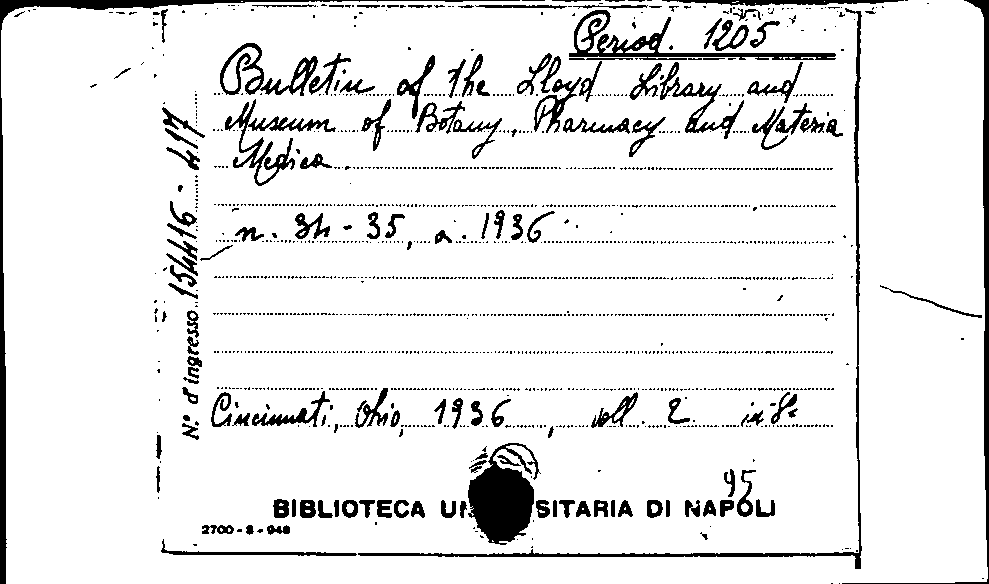 Period. 1205
Bulletin of the Lloyd Library and
Museum of Botany, Pharmacy and Materia
Medica.
n. 34-35, a. 1936
N.° d'ingresso 154416-417
Cincinnati, Ohio, 1936, voll. 2 in-8°
95
BIBLIOTECA UN SITARIA DI NAPOLI
2700-8-948